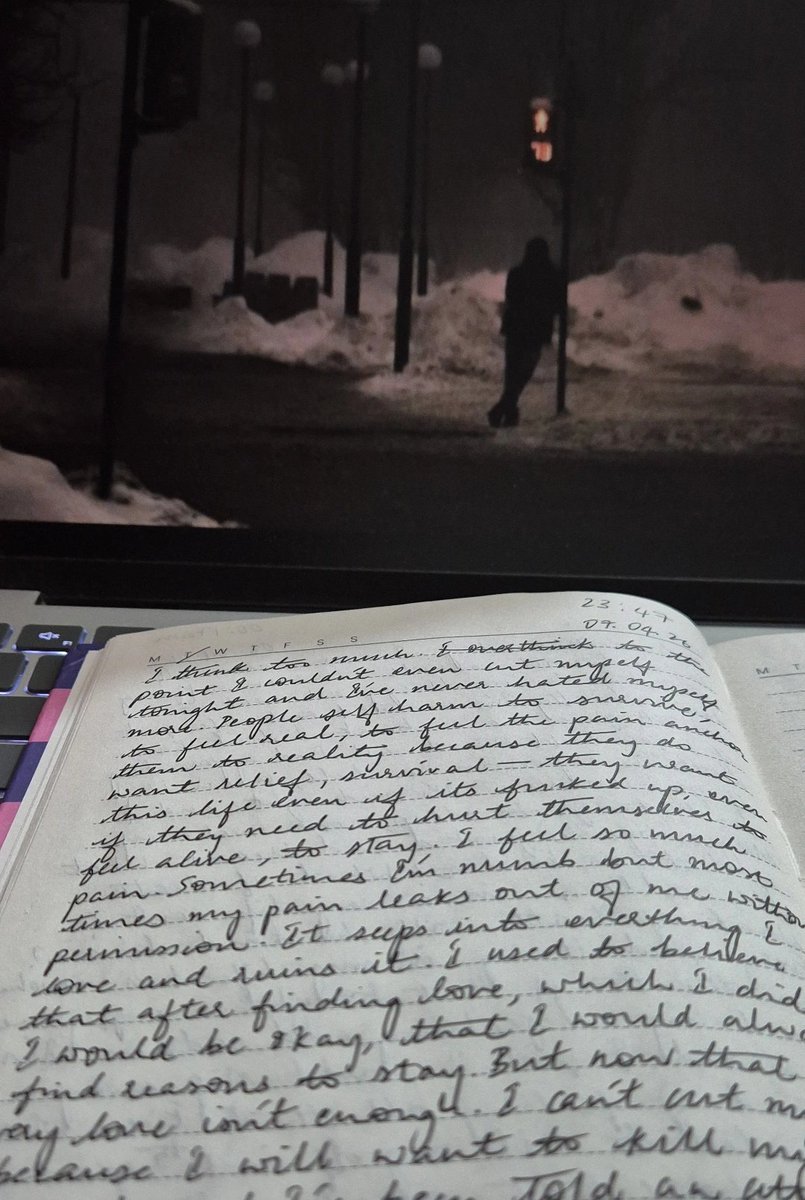 23:47
09.04.26
M T W T F S S
I think too much. I overthink to the
point I couldn't even cut myself
tonight and I've never hated myself
more. People self harm to survive,
to feel real, to feel the pain anchor
them to reality because they do
want relief, survival — they want
this life even if its fucked up, even
if they need to hurt themselves to
feel alive, to stay. I feel so much
pain. Sometimes I'm numb but most
times my pain leaks out of me without
permission. It seeps into everything I
love and ruins it. I used to believe
that after finding love, which I did
I would be okay, that I would
find reasons to stay. But now that
love isn't enough. I can't cut
because I will want to kill
been Told
M T